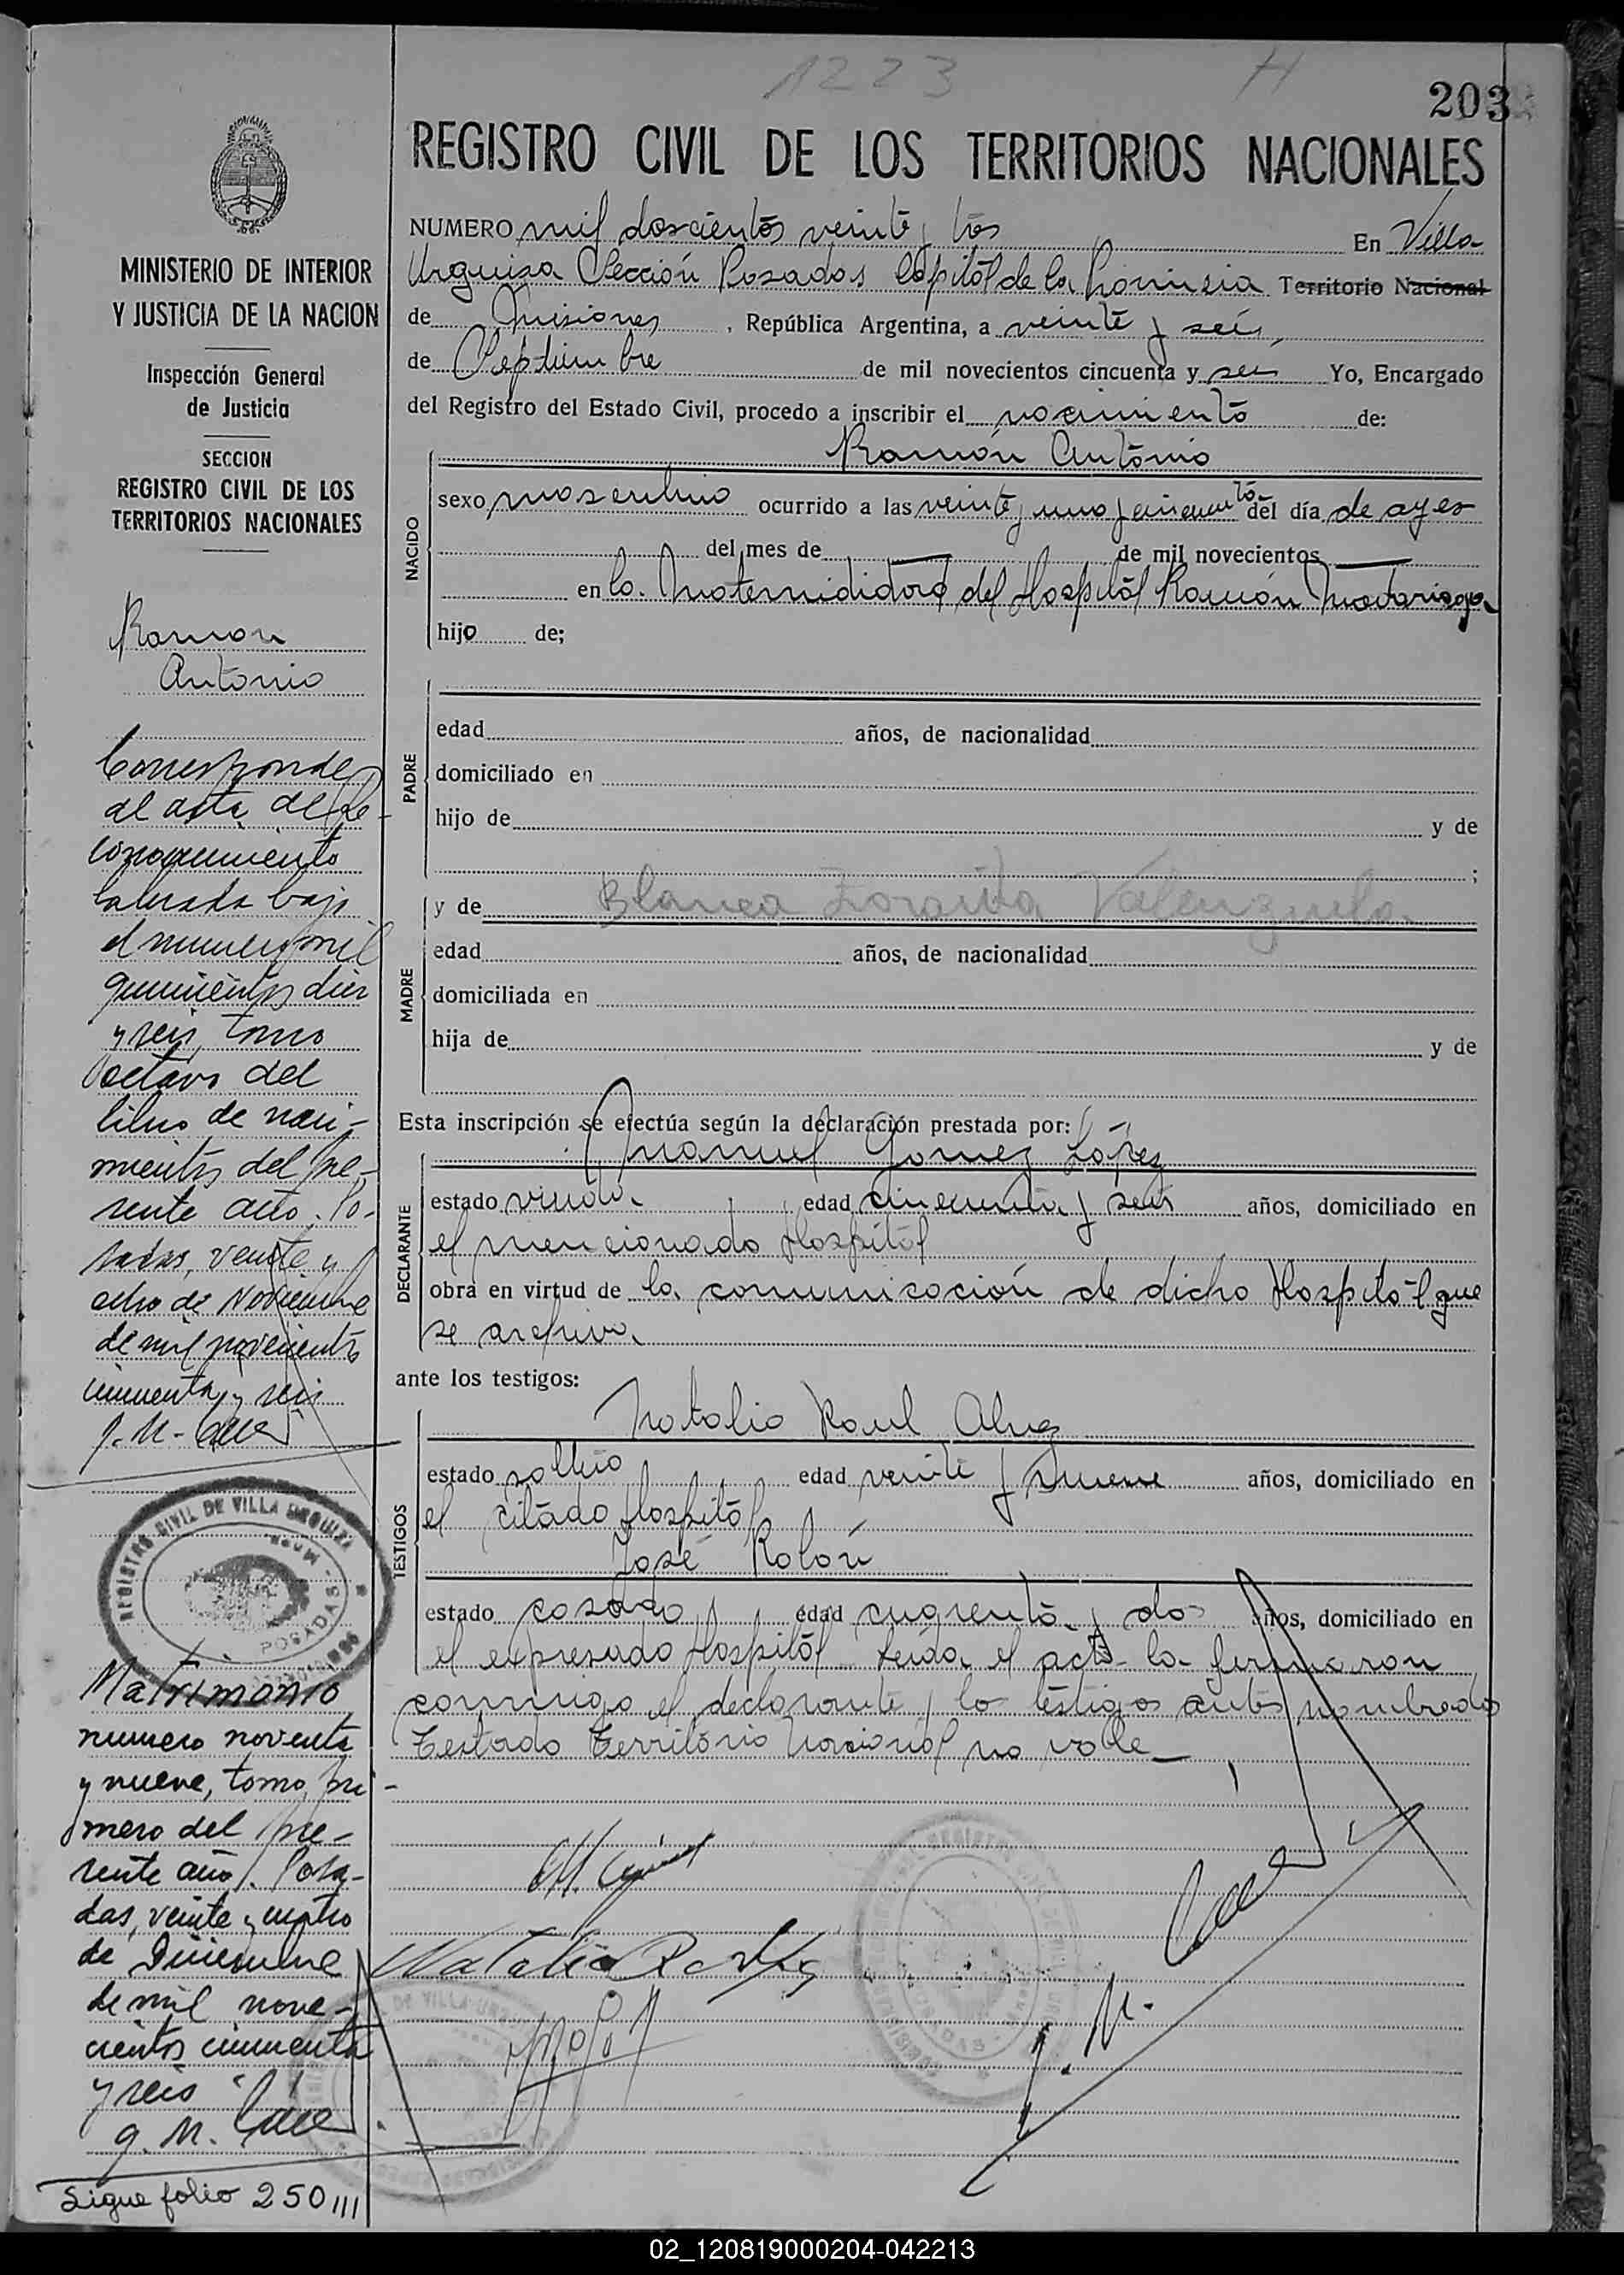 1223 H
203
REGISTRO CIVIL DE LOS TERRITORIOS NACIONALES
NUMERO mil doscientos veinte y tres En Villa
Urquiza Sección Posadas Capital de la Provincia Territorio Nacional
de Misiones, República Argentina, a veinte y seis
de Septiembre de mil novecientos cincuenta y seis Yo, Encargado
del Registro del Estado Civil, procedo a inscribir el nacimiento de:
MINISTERIO DE INTERIOR
Y JUSTICIA DE LA NACION
Inspección General
de Justicia
SECCION
REGISTRO CIVIL DE LOS
TERRITORIOS NACIONALES
Ramon
Antonio
Corresponde
al acta de Re-
conocimiento
labrada bajo
el numero mil
quinientos diez
y seis, tomo
octavo del
libro de naci-
mientos del pre-
sente año. Po-
sadas, veinte y
ocho de Noviembre
de mil novecientos
cincuenta y seis
REGISTRO CIVIL DE VILLA URQUIZA
POSADAS
Matrimonio
numero noventa
y nueve, tomo pri-
mero del pre-
sente año. Posa-
das, veinte y cuatro
de Diciembre
de mil nove-
cientos cincuenta
y seis
Sigue folio 250
NACIDO
Ramón Antonio
sexo masculino ocurrido a las veinte y uno y cincuenta del día de ayer
del mes de de mil novecientos
en la Maternidad del Hospital Ramón Madariaga
hijo de;
PADRE
edad años, de nacionalidad
domiciliado en
hijo de y de
;
MADRE
y de Blanca Zoraida Valenzuela
edad años, de nacionalidad
domiciliada en
hija de y de
Esta inscripción se efectúa según la declaración prestada por:
DECLARANTE
Manuel Gomez López
estado viudo edad cincuenta y seis años, domiciliado en
el mencionado Hospital
obra en virtud de la comunicación de dicho Hospital que
se archiva.
ante los testigos:
TESTIGOS
Natalio Raul Alvez
estado soltero edad veinte y nueve años, domiciliado en
el citado Hospital
José Rolón
estado casado edad cuarenta y dos años, domiciliado en
el expresado Hospital Leida el acta la firmaron
conmigo el declarante y lo testigos antes nombrados
Testado Territorio Nacional no vale
02_120819000204-042213